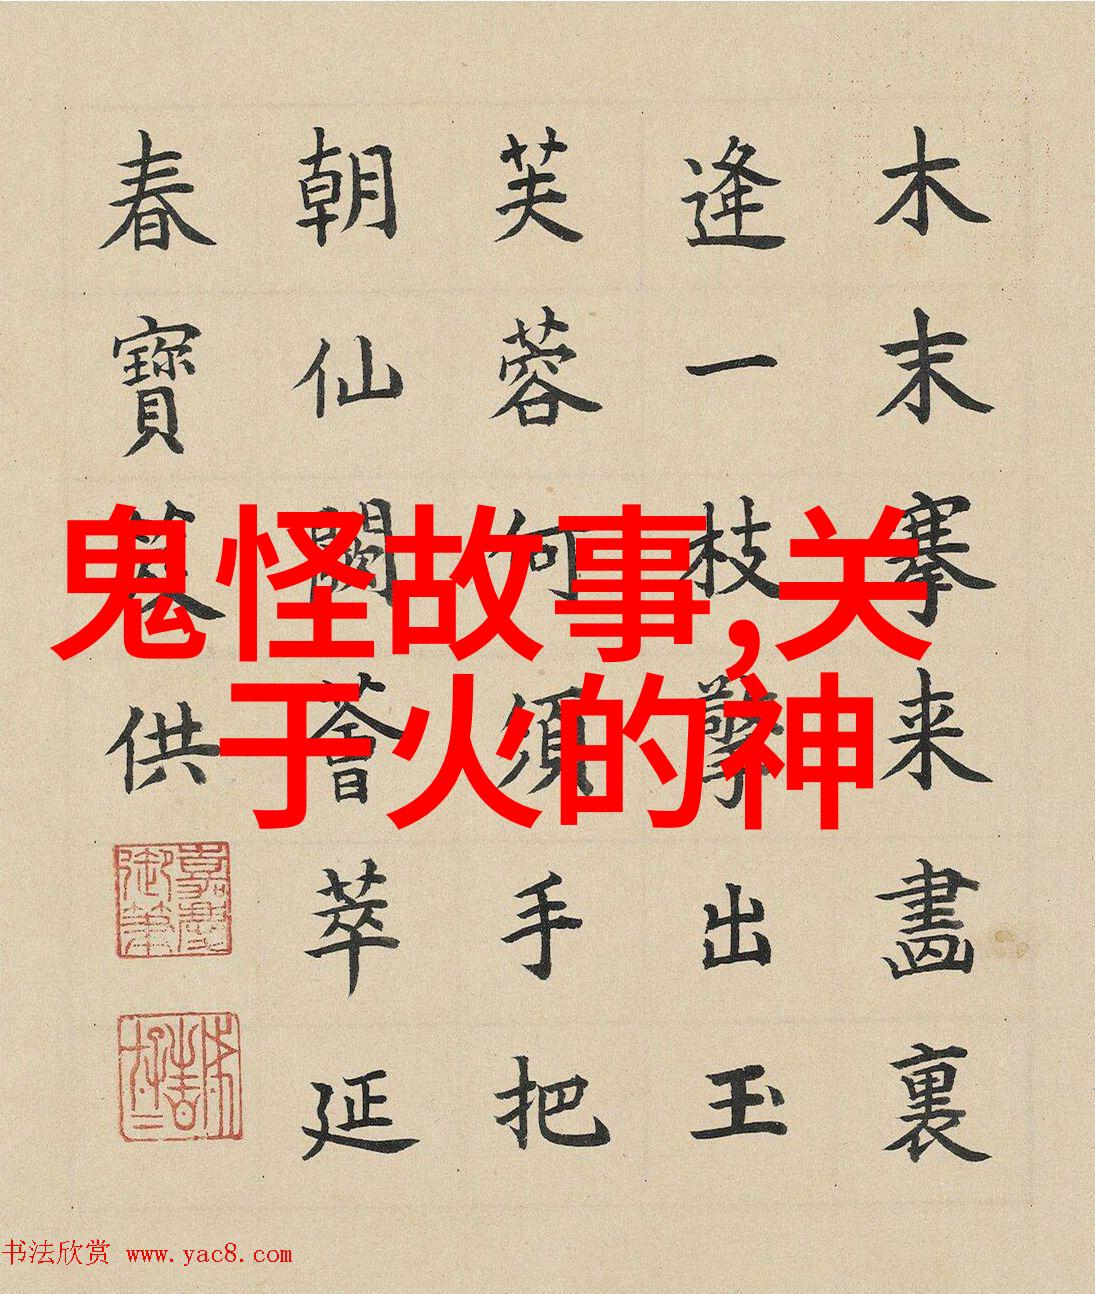 鬼怪故事,关
于火的神
木末搴来畫裏
逢一枝擎出玉
芙蓉何須手把
朝仙闕薈萃延
春寶供
嘉慶
御筆
书法欣赏 www.yac8.com